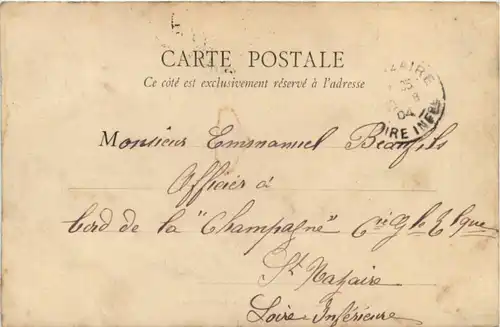 CARTE POSTALE
Ce côté est exclusivement réservé à l'adresse
AZAIRE
04
IRE INFRE
Monsieur Emmanuel Beaufils
Officier à
bord de la "Champagne" Cie Gle Tlque
St Nazaire
Loire Inférieure